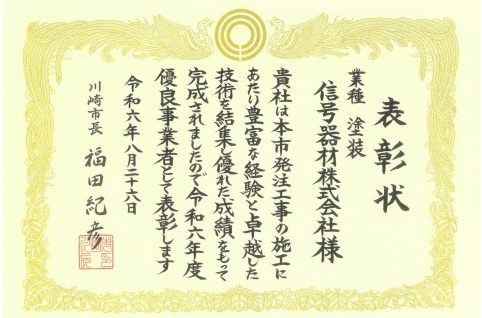 表彰状
業種 塗装
信号器材株式会社様
貴社は本市発注工事の施工に
あたり豊富な経験と卓越した
技術を結集し優れた成績をもって
完成されましたので令和六年度
優良事業者として表彰します
令和六年八月二十六日
川崎市長 福田紀彦